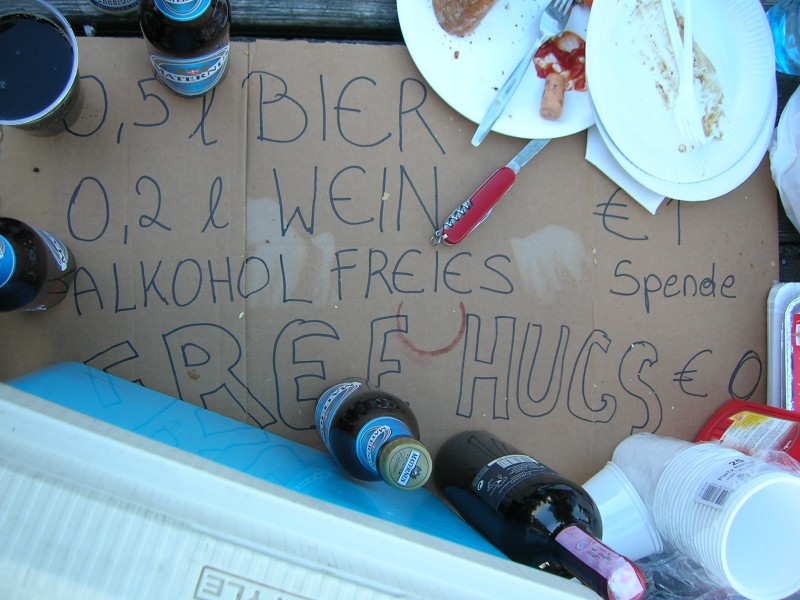 0,5 l BIER
0,2 l WEIN € 1
ALKOHOLFREIES Spende
FREE HUGS € 0
PATERNI
25